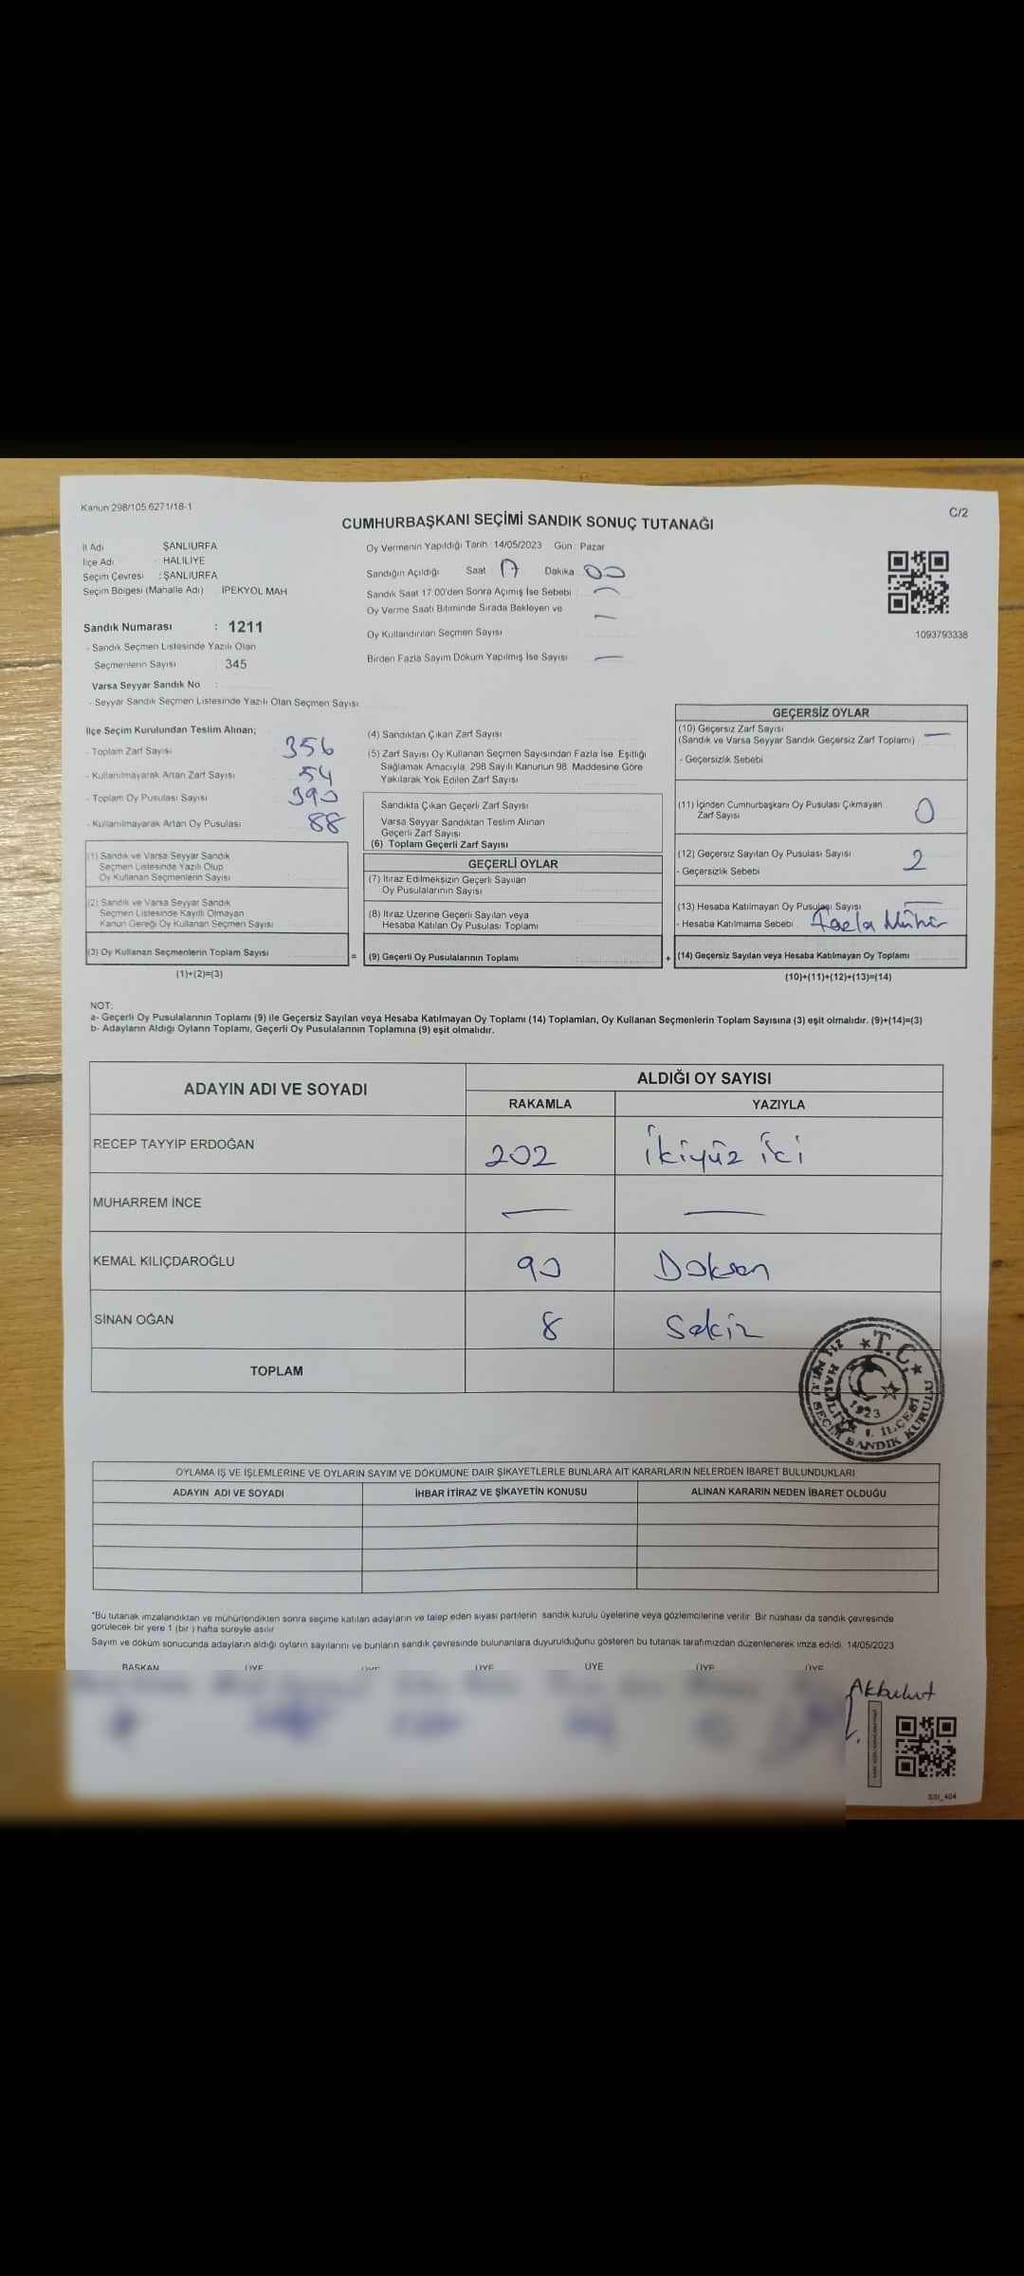 Kanun 298/105 6271/18-1
C/2
CUMHURBAŞKANI SEÇİMİ SANDIK SONUÇ TUTANAĞI
İl Adı ŞANLIURFA
İlçe Adı : HALİLİYE
Seçim Çevresi : ŞANLIURFA
Seçim Bölgesi (Mahalle Adı) İPEKYOL MAH
Sandık Numarası : 1211
- Sandık Seçmen Listesinde Yazılı Olan
Seçmenlerin Sayısı 345
Varsa Seyyar Sandık No :
- Seyyar Sandık Seçmen Listesinde Yazılı Olan Seçmen Sayısı
Oy Vermenin Yapıldığı Tarih : 14/05/2023 Gün : Pazar
Sandığın Açıldığı Saat 17 Dakika 00
Sandık Saat 17.00'den Sonra Açımış İse Sebebi —
Oy Verme Saati Bitiminde Sırada Bekleyen ve
Oy Kullandırılan Seçmen Sayısı —
Birden Fazla Sayım Döküm Yapılmış İse Sayısı —
1093793338
İlçe Seçim Kurulundan Teslim Alınan;
- Toplam Zarf Sayısı 356
- Kullanılmayarak Artan Zarf Sayısı 54
- Toplam Oy Pusulası Sayısı 390
- Kullanılmayarak Artan Oy Pusulası 88
(1) Sandık ve Varsa Seyyar Sandık
Seçmen Listesinde Yazılı Olup
Oy Kullanan Seçmenlerin Sayısı
(2) Sandık ve Varsa Seyyar Sandık
Seçmen Listesinde Kayıtlı Olmayan
Kanun Gereği Oy Kullanan Seçmen Sayısı
(3) Oy Kullanan Seçmenlerin Toplam Sayısı
(1)+(2)=(3)
(4) Sandıktan Çıkan Zarf Sayısı
(5) Zarf Sayısı Oy Kullanan Seçmen Sayısından Fazla İse, Eşitliği
Sağlamak Amacıyla, 298 Sayılı Kanunun 98. Maddesine Göre
Yakılarak Yok Edilen Zarf Sayısı
Sandıkta Çıkan Geçerli Zarf Sayısı
Varsa Seyyar Sandıktan Teslim Alınan
Geçerli Zarf Sayısı
(6) Toplam Geçerli Zarf Sayısı
GEÇERLİ OYLAR
(7) İtiraz Edilmeksizin Geçerli Sayılan
Oy Pusulalarının Sayısı
(8) İtiraz Üzerine Geçerli Sayılan veya
Hesaba Katılan Oy Pusulası Toplamı
= (9) Geçerli Oy Pusulalarının Toplamı
GEÇERSİZ OYLAR
(10) Geçersiz Zarf Sayısı
(Sandık ve Varsa Seyyar Sandık Geçersiz Zarf Toplamı) —
- Geçersizlik Sebebi
(11) İçinden Cumhurbaşkanı Oy Pusulası Çıkmayan
Zarf Sayısı 0
(12) Geçersiz Sayılan Oy Pusulası Sayısı 2
- Geçersizlik Sebebi
(13) Hesaba Katılmayan Oy Pusulası Sayısı —
- Hesaba Katılmama Sebebi Fazla Mühür
+ (14) Geçersiz Sayılan veya Hesaba Katılmayan Oy Toplamı
(10)+(11)+(12)+(13)=(14)
NOT:
a- Geçerli Oy Pusulalarının Toplamı (9) ile Geçersiz Sayılan veya Hesaba Katılmayan Oy Toplamı (14) Toplamları, Oy Kullanan Seçmenlerin Toplam Sayısına (3) eşit olmalıdır. (9)+(14)=(3)
b- Adayların Aldığı Oyların Toplamı, Geçerli Oy Pusulalarının Toplamına (9) eşit olmalıdır.
ADAYIN ADI VE SOYADI ALDIĞI OY SAYISI
RAKAMLA YAZIYLA
RECEP TAYYİP ERDOĞAN 202 İkiyüz İci
MUHARREM İNCE — —
KEMAL KILIÇDAROĞLU 90 Doksan
SİNAN OĞAN 8 Sekiz
TOPLAM
T.C.
1923
OYLAMA İŞ VE İŞLEMLERİNE VE OYLARIN SAYIM VE DÖKÜMÜNE DAİR ŞİKAYETLERLE BUNLARA AİT KARARLARIN NELERDEN İBARET BULUNDUKLARI
ADAYIN ADI VE SOYADI İHBAR İTİRAZ VE ŞİKAYETİN KONUSU ALINAN KARARIN NEDEN İBARET OLDUĞU
*Bu tutanak imzalandıktan ve mühürlendikten sonra seçime katılan adayların ve talep eden siyasi partilerin sandık kurulu üyelerine veya gözlemcilerine verilir. Bir nüshası da sandık çevresinde
görülecek bir yere 1 (bir ) hafta süreyle asılır
Sayım ve döküm sonucunda adayların aldığı oyların sayılarını ve bunların sandık çevresinde bulunanlara duyurulduğunu gösteren bu tutanak tarafımızdan düzenlenerek imza edildi. 14/05/2023
BAŞKAN ÜYE ÜYE ÜYE ÜYE ÜYE ÜYE
Akbulut